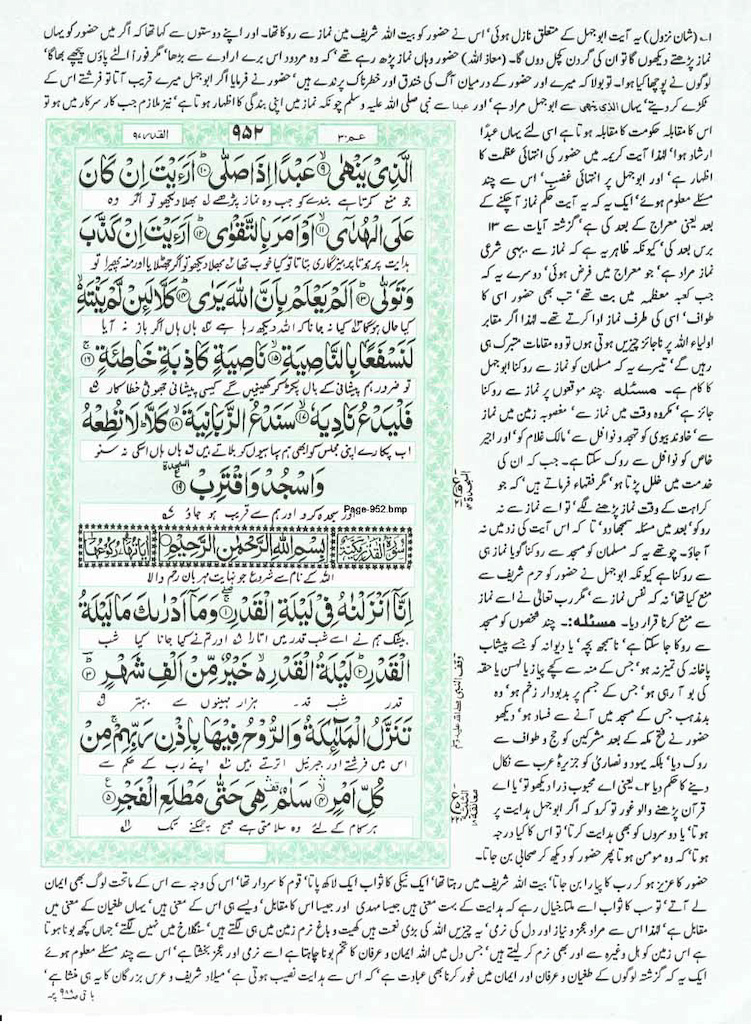 ۱۔ (شان نزول) یہ آیت ابو جہل کے متعلق نازل ہوئی' اس نے حضور کو بیت اللہ شریف میں نماز سے روکا تھا۔ اور اپنے دوستوں سے کہا تھا کہ اگر میں حضور کو یہاں
نماز پڑھتے دیکھوں گا تو ان کی گردن کچل دوں گا۔ (معاذ اللہ) حضور وہاں نماز پڑھ رہے تھے' کہ وہ مردود اس برے ارادے سے بڑھا' مگر فوراً الٹے پاؤں پیچھے بھاگا'
لوگوں نے پوچھا کیا ہوا۔ تو بولا کہ میرے اور حضور کے درمیان آگ کی خندق اور خطرناک پرندے ہیں' حضور نے فرمایا اگر ابو جہل میرے قریب آتا تو فرشتے اس کے
ٹکڑے کر دیتے' یہاں الذی ینھی سے ابو جہل مراد ہے' اور عبدا سے نبی صلی اللہ علیہ وسلم چونکہ نماز میں اپنی بندگی کا اظہار ہوتا ہے' نیز ملازم جب کار سرکار میں ہو تو
اس کا مقابلہ حکومت کا مقابلہ ہوتا ہے اسی لئے یہاں عبدًا
ارشاد ہوا' لہٰذا آیت کریمہ میں حضور کی انتہائی عظمت کا
اظہار ہے' اور ابو جہل پر انتہائی غضب' اس سے چند
مسئلے معلوم ہوئے' ایک یہ کہ یہ آیت حکم نماز آ چکنے کے
بعد یعنی معراج کے بعد کی ہے' گزشتہ آیات سے ۱۳
برس بعد کی' کیونکہ ظاہر یہ ہے کہ نماز سے یہی شرعی
نماز مراد ہے' جو معراج میں فرض ہوئی' دوسرے یہ کہ
جب کعبہ معظمہ میں بت تھے' تب بھی حضور اسی کا
طواف' اسی کی طرف نماز ادا کرتے تھے۔ لہٰذا اگر مقابر
اولیاء اللہ پر ناجائز چیزیں ہوتی ہوں تو وہ مقامات متبرک ہی
رہیں گے' تیسرے یہ کہ مسلمان کو نماز سے روکنا ابو جہل
کا کام ہے۔ مسئلہ چند موقعوں پر نماز سے روکنا
جائز ہے' مکروہ وقت میں نماز سے' مغصوبہ زمین میں نماز
سے' خاوند بیوی کو تہجد و نوافل سے' مالک غلام کو' اور اجیر
خاص کو نوافل سے روک سکتا ہے۔ جب کہ ان کی
خدمت میں خلل پڑتا ہو' مگر فقہاء فرماتے ہیں' کہ جو
کراہت کے وقت نماز پڑھنے لگے' تو اسے نماز سے نہ
روکو' بعد میں مسئلہ سمجھا دو' تا کہ اس آیت کی زد میں نہ
آ جاؤ۔ چوتھے یہ کہ مسلمان کو مسجد سے روکنا گویا نماز ہی
سے روکنا ہے کیونکہ ابو جہل نے حضور کو حرم شریف سے
منع کیا تھا' نہ کہ نفس نماز سے' مگر رب تعالٰی نے اسے نماز
سے منع کرنا قرار دیا۔ مسئلہ:۔ چند شخصوں کو مسجد
سے روکا جا سکتا ہے' ناسمجھ بچہ' یا دیوانہ کو جسے پیشاب
پاخانہ کی تمیز نہ ہو' جس کے منہ سے کچے پیاز یا لہسن یا حقہ
کی بو آ رہی ہو' جس کے جسم پر بدبو دار زخم ہو' وہ
بدمذہب جس کے مسجد میں آنے سے فساد ہو' دیکھو
حضور نے فتح مکہ کے بعد مشرکین کو حج و طواف سے
روک دیا' بلکہ یہود و نصاریٰ کو جزیرۂ عرب سے نکال
دینے کا حکم دیا ۲۔ یعنی اے محبوب ذرا دیکھو تو' یا اے
قرآن پڑھنے والو غور تو کرو کہ اگر ابو جہل ہدایت پر
ہوتا' یا دوسروں کو بھی ہدایت کرتا' تو اس کا کیا درجہ
ہوتا' کہ وہ مومن ہوتا پھر حضور کو دیکھ کر صحابی بن جاتا۔
القدر ۹۷
۹۵۲
عم ۳۰
الَّذِیْ یَنْهٰىۙ۹ عَبْدًا اِذَا صَلّٰىؕ۱۰ اَرَءَیْتَ اِنْ كَانَ
جو منع کرتا ہے بندے کو جب وہ نماز پڑھے بھلا دیکھو تو اگر وہ
عَلَى الْهُدٰۤىۙ۱۱ اَوْ اَمَرَ بِالتَّقْوٰىؕ۱۲ اَرَءَیْتَ اِنْ كَذَّبَ
ہدایت پر ہوتا یا پرہیزگاری بتاتا تو کیا خوب تھا بھلا دیکھو تو اگر جھٹلایا اور منہ پھیرا تو
وَ تَوَلّٰىؕ۱۳ اَلَمْ یَعْلَمْ بِاَنَّ اللّٰهَ یَرٰىؕ۱۴ كَلَّا لَىِٕنْ لَّمْ یَنْتَهِ
کیا حال ہوگا کیا نہ جانا کہ اللہ دیکھ رہا ہے ہاں ہاں اگر باز نہ آیا
لَنَسْفَعًۢا بِالنَّاصِیَةِۙ۱۵ نَاصِیَةٍ كَاذِبَةٍ خَاطِئَةٍۚ۱۶
تو ضرور ہم پیشانی کے بال پکڑ کر کھینچیں گے کیسی پیشانی جھوٹی خطا کار
فَلْیَدْعُ نَادِیَهٗۙ۱۷ سَنَدْعُ الزَّبَانِیَةَۙ۱۸ كَلَّاؕ لَا تُطِعْهُ
اب پکارے اپنی مجلس کو ابھی ہم سپاہیوں کو بلاتے ہیں ہاں ہاں اسکی نہ سنو
السجدۃ
وَ اسْجُدْ وَ اقْتَرِبْ۠۱۹
اور سجدہ کرو اور ہم سے قریب ہو جاؤ
Page-952.bmp
سُوْرَةُ الْقَدْرِ مَكِّیَّةٌ
بِسْمِ اللّٰهِ الرَّحْمٰنِ الرَّحِیْمِ
اٰیَاتُهَا ۵ رُكُوْعُهَا ۱
اللہ کے نام سے شروع جو نہایت مہربان رحم والا
اِنَّاۤ اَنْزَلْنٰهُ فِیْ لَیْلَةِ الْقَدْرِۚۖ۱ وَ مَاۤ اَدْرٰىكَ مَا لَیْلَةُ
بیشک ہم نے اسے شب قدر میں اتارا اور تم نے کیا جانا کیا شب
الْقَدْرِؕ۲ لَیْلَةُ الْقَدْرِ ۙ۬ خَیْرٌ مِّنْ اَلْفِ شَهْرٍؕؔ۳
قدر شب قدر ہزار مہینوں سے بہتر
تَنَزَّلُ الْمَلٰٓىِٕكَةُ وَ الرُّوْحُ فِیْهَا بِاِذْنِ رَبِّهِمْۚ مِنْ
اس میں فرشتے اور جبرئیل اترتے ہیں اپنے رب کے حکم سے
كُلِّ اَمْرٍۙۛ۴ سَلٰمٌ ۛ۫ هِیَ حَتّٰى مَطْلَعِ الْفَجْرِ۠۵
ہر کام کے لئے وہ سلامتی ہے صبح چمکنے تک
حضور کا عزیز ہو کر رب کا پیارا بن جاتا' بیت اللہ شریف میں رہتا تھا' ایک نیکی کا ثواب ایک لاکھ پاتا' قوم کا سردار تھا' اس کی وجہ سے اس کے ماتحت لوگ بھی ایمان
لے آتے' تو سب کا ثواب اسے ملتا خیال رہے کہ ہدایت کے بہت معنی ہیں جیسا مہدی اور جیسا اس کا مقابل' ویسے ہی اس کے معنی ہیں' یہاں طغیان کے معنی میں
مقابل ہے' لہٰذا اس سے مراد عجز و نیاز اور دل کی نرمی' یہ چیزیں اللہ کی بڑی نعمت ہیں کھیت و باغ نرم زمین میں ہی لگتے ہیں' سنگلاخ میں نہیں لگتے' جہاں کچھ بونا ہوتا
ہے اس زمین کو ہل وغیرہ سے اور بھی نرم کر لیتے ہیں' جس دل میں اللہ ایمان و عرفان کا تخم بونا چاہتا ہے اسے نرمی اور عجز بخشتا ہے' اس سے چند مسئلے معلوم ہوئے
ایک یہ کہ گزشتہ لوگوں کے طغیان و عرفان اور ایمان میں غور کرنا بھی عبادت ہے' کہ اس سے ہدایت نصیب ہوتی ہے' میلاد شریف و عرس بزرگان کا یہ ہی منشا ہے'
باقی صفحہ ۹۸۹ پر